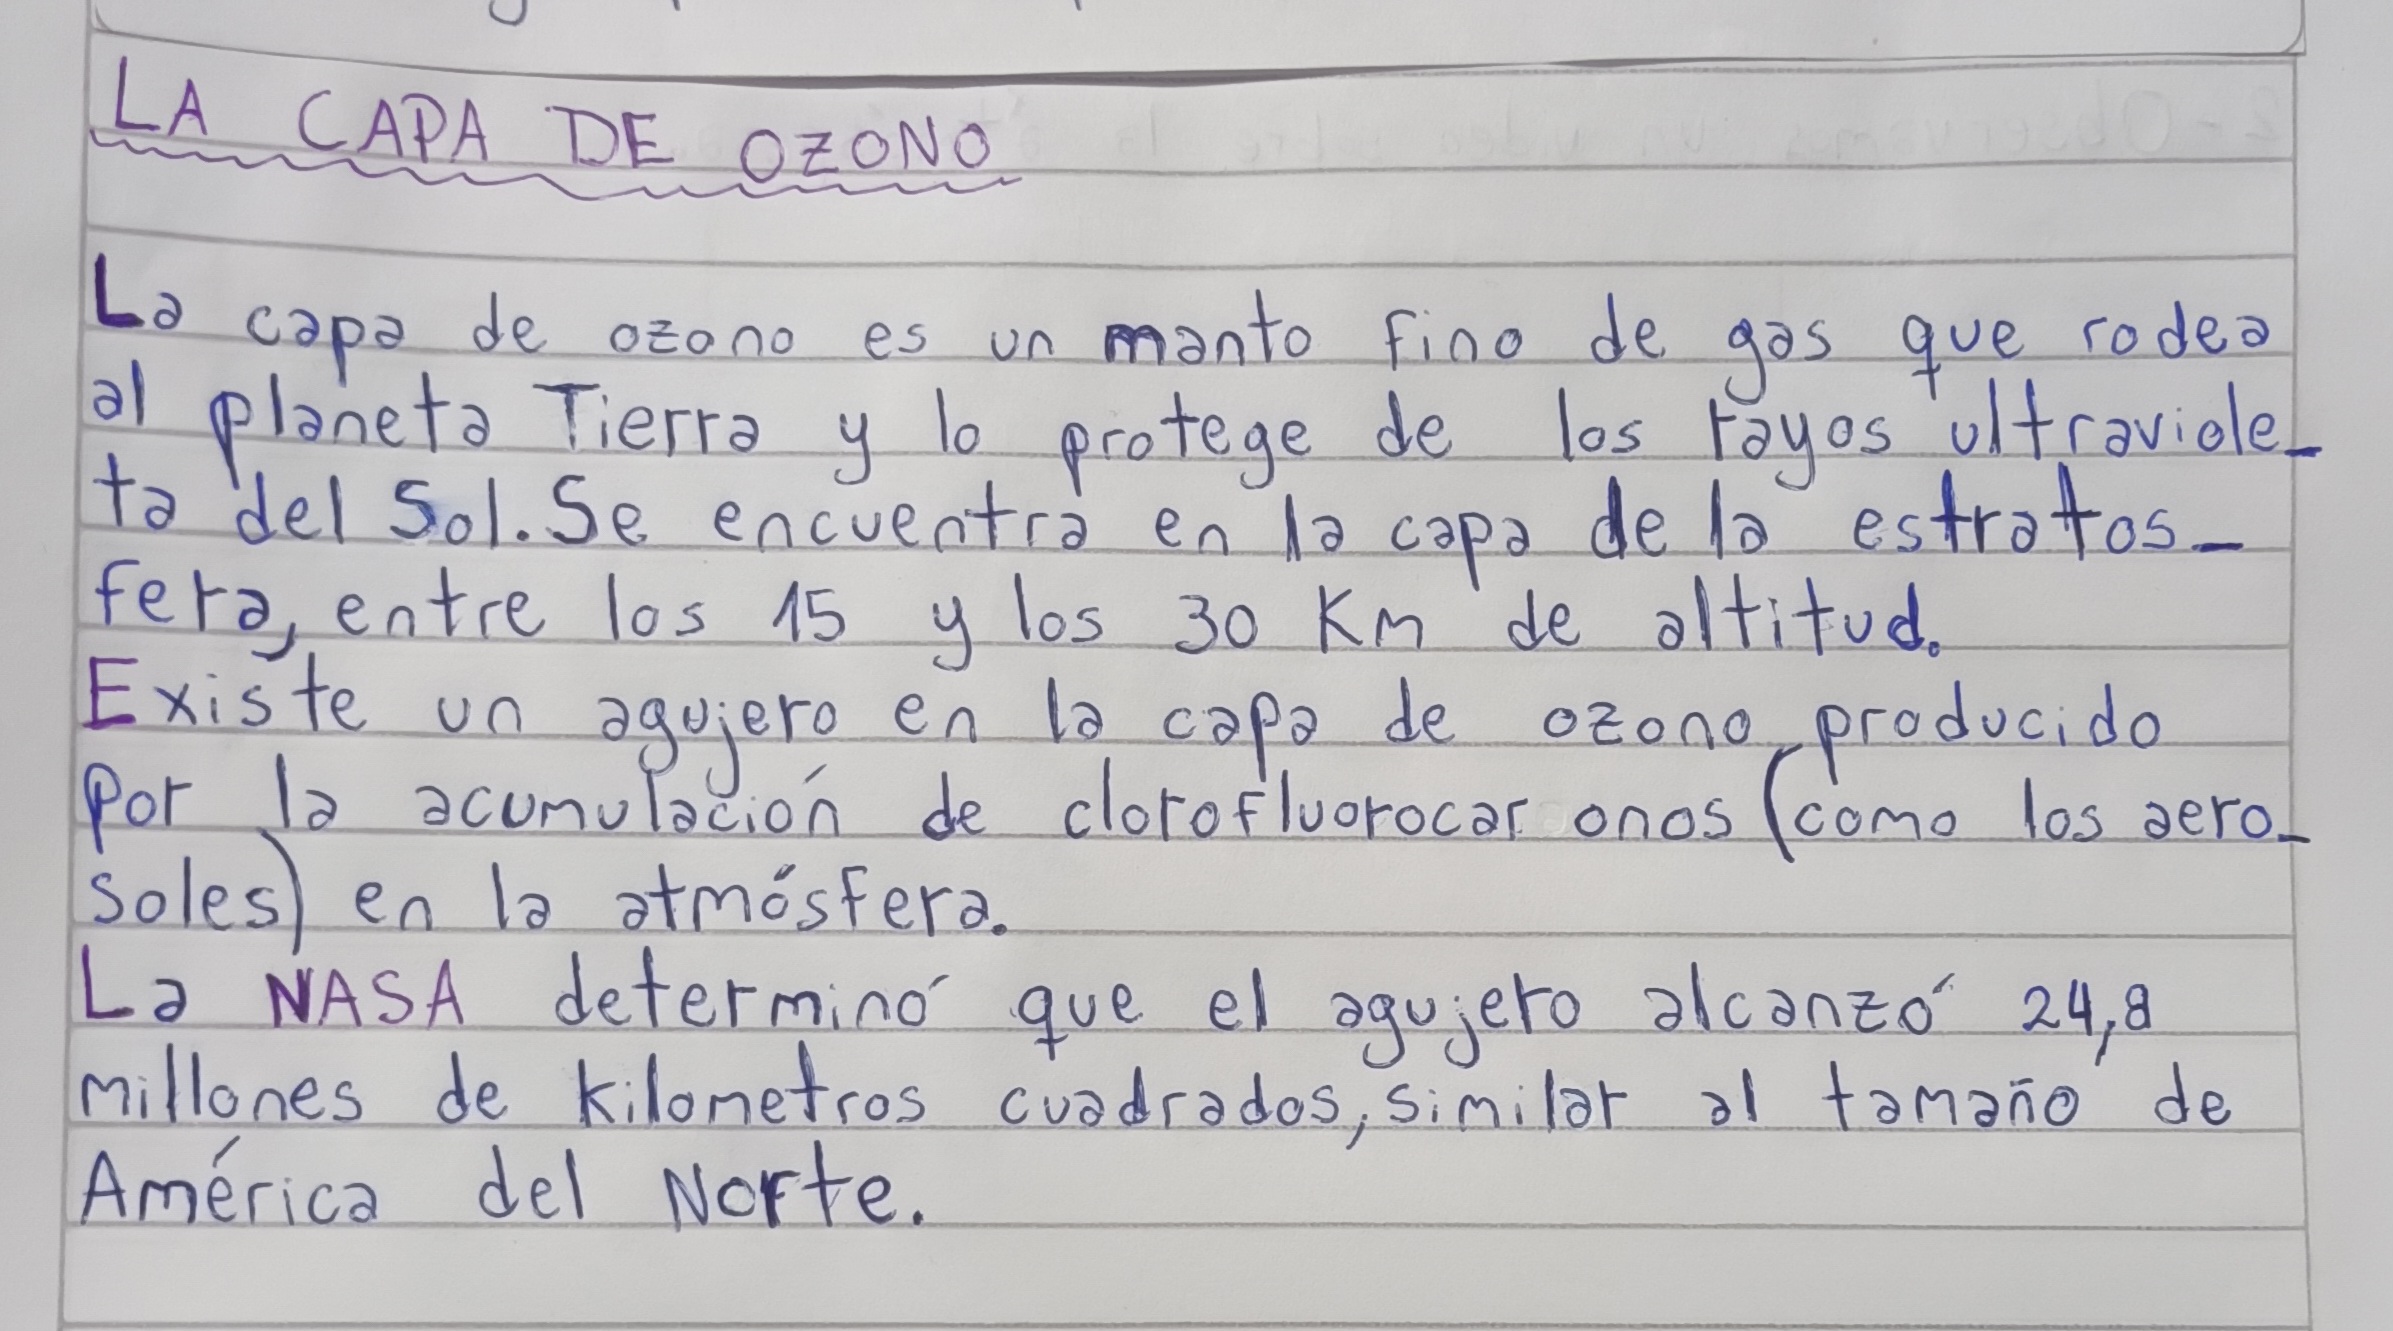 LA CAPA DE OZONO
La capa de ozono es un manto fino de gas que rodea
al planeta Tierra y lo protege de los rayos ultraviole-
ta del Sol. Se encuentra en la capa de la estratos-
fera, entre los 15 y los 30 Km de altitud.
Existe un agujero en la capa de ozono producido
por la acumulación de clorofluorocar onos (como los aero-
soles) en la atmósfera.
La NASA determinó que el agujero alcanzó 24,8
millones de kilometros cuadrados, similar al tamaño de
América del Norte.